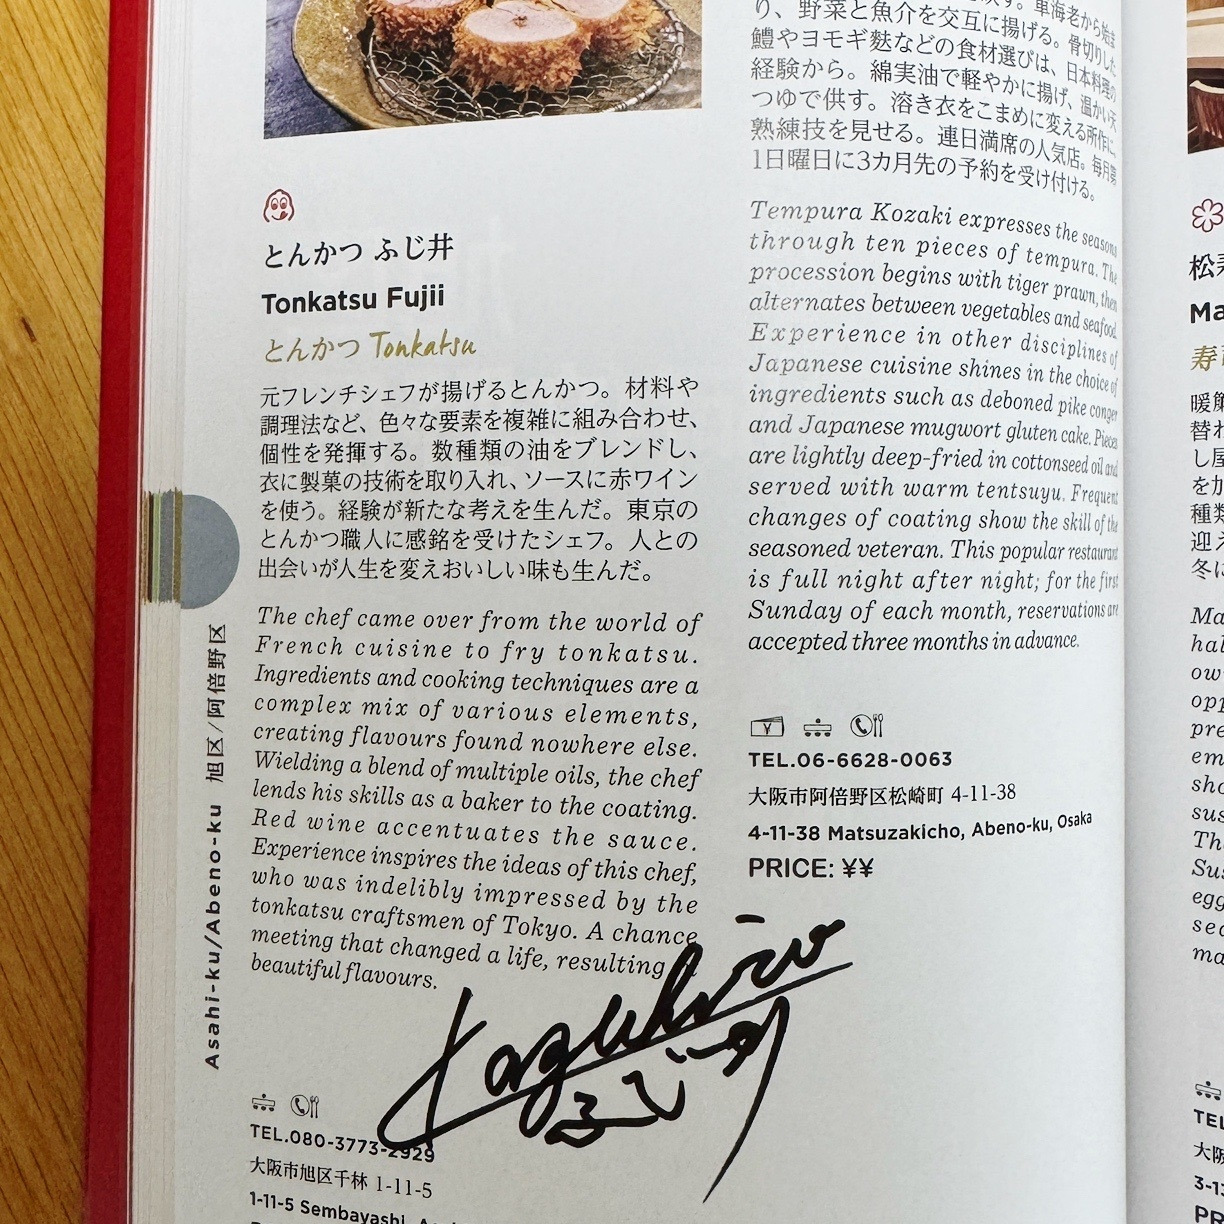 とんかつ ふじ井
Tonkatsu Fujii
とんかつ Tonkatsu
元フレンチシェフが揚げるとんかつ。材料や
調理法など、色々な要素を複雑に組み合わせ、
個性を発揮する。数種類の油をブレンドし、
衣に製菓の技術を取り入れ、ソースに赤ワイン
を使う。経験が新たな考えを生んだ。東京の
とんかつ職人に感銘を受けたシェフ。人との
出会いが人生を変えおいしい味も生んだ。
The chef came over from the world of
French cuisine to fry tonkatsu.
Ingredients and cooking techniques are a
complex mix of various elements,
creating flavours found nowhere else.
Wielding a blend of multiple oils, the chef
lends his skills as a baker to the coating.
Red wine accentuates the sauce.
Experience inspires the ideas of this chef,
who was indelibly impressed by the
tonkatsu craftsmen of Tokyo. A chance
meeting that changed a life, resulting
beautiful flavours.
TEL.080-3773-2929
大阪市旭区千林 1-11-5
1-11-5 Sembayashi,
Kazuhiro
ふじ井
Asahi-ku/Abeno-ku 旭区/阿倍野区
り、野菜と魚介を交互に揚げる。骨切りした
鱧やヨモギ麩などの食材選びは、日本料理の
経験から。綿実油で軽やかに揚げ、温かい天
つゆで供す。溶き衣をこまめに変える所作に、
熟練技を見せる。連日満席の人気店。毎月第
1日曜日に3カ月先の予約を受け付ける。
Tempura Kozaki expresses the seasons
through ten pieces of tempura. The
procession begins with tiger prawn, then
alternates between vegetables and seafood.
Experience in other disciplines of
Japanese cuisine shines in the choice of
ingredients such as deboned pike conger
and Japanese mugwort gluten cake. Pieces
are lightly deep-fried in cottonseed oil and
served with warm tentsuyu. Frequent
changes of coating show the skill of the
seasoned veteran. This popular restaurant
is full night after night; for the first
Sunday of each month, reservations are
accepted three months in advance.
TEL.06-6628-0063
大阪市阿倍野区松崎町 4-11-38
4-11-38 Matsuzakicho, Abeno-ku, Osaka
PRICE: ¥¥